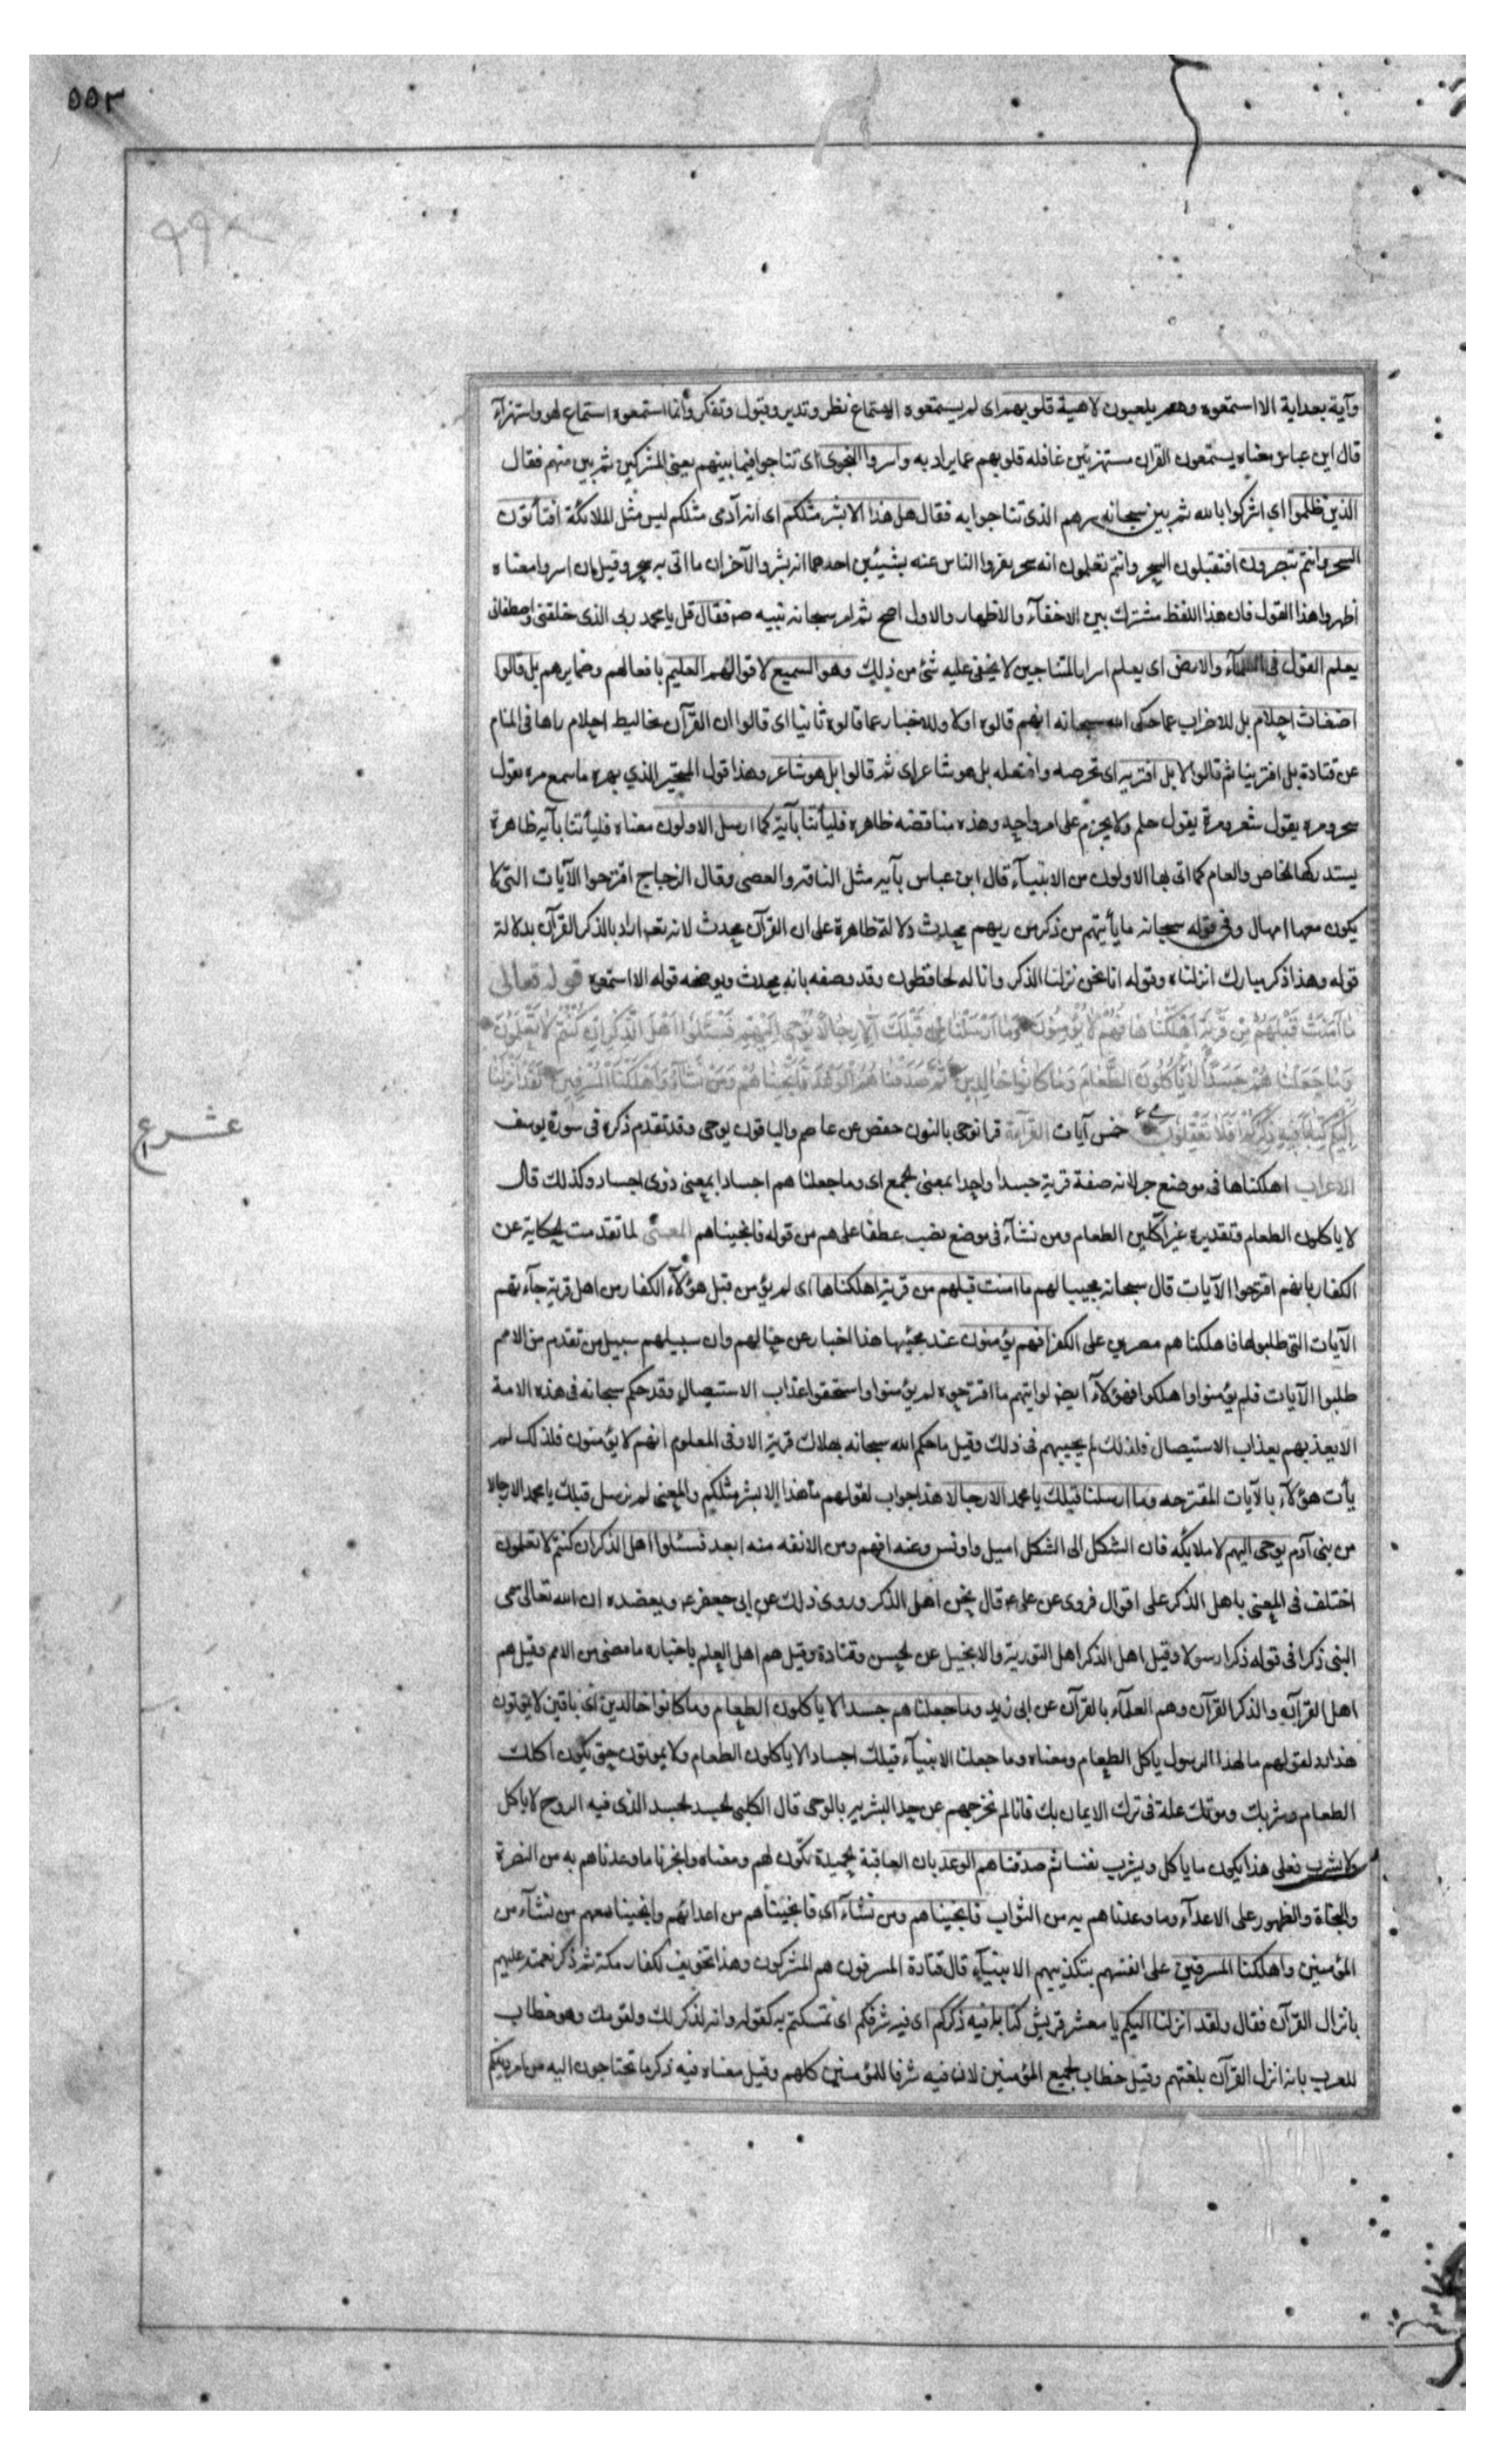 ٥٥٢
وآية بعد آية الا استمعوه وهم يلعبون لاهية قلوبهم اى لم يستمعوه الاستماع نظر وتدبر وقبول وتفكر وانما استمعوه استماع لهو واستهزآء
قال ابن عباس معناه يستمعون القران مستهزئين غافله قلوبهم عما يراد به واسروا النجوى اى تناجوا فيما بينهم يعنى المشركين ثم بين منهم فقال
الذين ظلموا اي اشركوا بالله ثم بين سبحانه سرهم الذى تناجوا به فقال هل هذا الا بشر مثلكم اى انه آدمى مثلكم ليس مثل الملائكة افتأتون
السحر وانتم تبصرون افتقبلون السحر وانتم تعلمون انه سحر نفروا الناس عنه بشيئين احدهما انه بشر والآخر ان ما اتى به سحر وقيل ان اسروا معناه
اظهروا هذا القول فان هذا اللفظ مشترك بين الاخفآء والاظهار والاول اصح ثم امر سبحانه نبيه صم فقال قل يا محمد ربى الذى خلقنى واصطفانى
يعلم القول فى السمآء والارض اى يعلم اسرار المتناجين لا يخفى عليه شئ من ذلك وهو السميع لاقوالهم العليم بافعالهم وضمايرهم بل قالوا
اضغاث احلام بل للاضراب عما حكى الله سبحانه انهم قالوه اولا وللاخبار عما قالوه ثانيا اى قالوا ان القرآن تخاليط احلام راها فى المنام
عن قتادة بل افتريه ثم قالوا لا بل افتريه اى تخرصه وافتعله بل هو شاعر اى ثم قالوا بل هو شاعر وهذا قول المتحير الذي بهره ما سمع مره يقول
سحر ومره يقول شعر ومرة يقول حلم ولا يجزم على امر واحد وهذه مناقضه ظاهره فليأتنا بآية كما ارسل الاولون معناه فليأتنا بآيه ظاهرة
يستدركها الخاص والعام كما اتى بها الاولون من الانبيآء قال ابن عباس بآيه مثل الناقه والعصى وقال الزجاج اقترحوا الآيات التى لا
يكون معها امهال وفى قوله سبحانه ما يأتيهم من ذكر من ربهم محدث دلالة ظاهرة على ان القرآن محدث لانه تعه اراد بالذكر القرآن بدلالة
قوله وهذا ذكر مبارك انزلناه وقوله انا نحن نزلنا الذكر وانا له لحافظون وقد وصفه بانه محدث ويوضحه قوله الا استمعوه قوله تعالى
مَا آمَنَتْ قَبْلَهُمْ مِنْ قَرْيَةٍ اَهْلَكْنَاهَا اَفَهُمْ لَا يُؤْمِنُونَ وَمَا اَرْسَلْنَا قَبْلَكَ اِلَّا رِجَالًا نُوحِى اِلَيْهِمْ فَسْئَلُوا اَهْلَ الذِّكْرِ اِنْ كُنْتُمْ لَا تَعْلَمُونَ
وَمَا جَعَلْنَاهُمْ جَسَدًا لَا يَأْكُلُونَ الطَّعَامَ وَمَا كَانُوا خَالِدِينَ ثُمَّ صَدَقْنَاهُمُ الْوَعْدَ فَاَنْجَيْنَاهُمْ وَمَنْ نَشَآءُ وَاَهْلَكْنَا الْمُسْرِفِينَ لَقَدْ اَنْزَلْنَا
اِلَيْكُمْ كِتَابًا فِيهِ ذِكْرُكُمْ اَفَلَا تَعْقِلُونَ خمس آيات القرآءة قرا نوحى بالنون حفص عن عاصم والباقون يوحى وقد تقدم ذكره فى سورة يوسف
عشر ع
الاعراب اهلكناها فى موضع جر لانه صفة قرية جسدا واحد بمعنى الجمع اى وما جعلناهم اجسادا بمعنى ذوى اجساد وكذلك قال
لا ياكلون الطعام وتقديره غير آكلين الطعام ومن نشآء فى موضع نصب عطفا على هم من قوله فانجيناهم المعنى لما تقدمت الحكاية عن
الكفار بانهم اقترحوا الآيات قال سبحانه مجيبا لهم ما امنت قبلهم من قرية اهلكناها اى لم يؤمن قبل هؤلآء الكفار من اهل قرية جآءتهم
الآيات التى طلبوها فاهلكناهم مصرين على الكفر افهم يؤمنون عند مجيئها هذا اخبار عن حالهم وان سبيلهم سبيل من تقدم من الامم
طلبوا الآيات فلم يؤمنوا واهلكوا فهؤلآء ايضا لو اتيهم ما اقترحوه لم يؤمنوا واستحقوا عذاب الاستيصال وقد حكم سبحانه فى هذه الامة
الا يعذبهم بعذاب الاستيصال فلذلك لم يجيبهم فى ذلك وقيل ما حكم الله سبحانه بهلاك قرية الا وفى المعلوم انهم لا يؤمنون فلذلك لم
يأت هؤلآء بالآيات المقترحه وما ارسلنا قبلك يا محمد الا رجالا هذا جواب لقولهم ما هذا الا بشر مثلكم والمعنى لم نرسل قبلك يا محمد الا رجالا
من بنى آدم يوحى اليهم لا ملايكه فان الشكل الى الشكل اميل وآنس وعنه افهم ومن الانفه منه ابعد فسئلوا اهل الذكر ان كنتم لا تعلمون
اختلف فى المعنى باهل الذكر على اقوال فروى عن على ع قال نحن اهل الذكر وروى ذلك عن ابى جعفر ع ويعضده ان الله تعالى سمى
النبى ذكرا فى قوله ذكرا رسولا وقيل اهل الذكر اهل التورية والانجيل عن الحسن وقتادة وقيل هم اهل العلم باخبار ما مضى من الامم وقيل هم
اهل القرآن والذكر القرآن وهم العلمآء بالقرآن عن ابى زيد وما جعلناهم جسدا لا ياكلون الطعام وما كانوا خالدين اى باقين لا يموتون
هذا رد لقولهم ما لهذا الرسول ياكل الطعام ومعناه وما جعلنا الانبيآء قبلك اجسادا لا ياكلون الطعام ولا يموتون حتى يكون اكلك
الطعام وشربك وموتك علة فى ترك الايمان بك فانا لم نخرجهم عن حد البشريه بالوحى قال الكلبى الجسد الجسد الذى فيه الروح لا ياكل
ولا يشرب فعلى هذا يكون ما ياكل ويشرب نفسا ثم صدقناهم الوعد بان العاقبة الحميدة تكون لهم ومعناه وانجزنا ما وعدناهم به من النصرة
والنجاة والظهور على الاعدآء وما وعدناهم به من الثواب فانجيناهم ومن نشآء اى فانجيناهم من اعدائهم وانجينا معهم من نشآء من
المؤمنين واهلكنا المسرفين على انفسهم بتكذيبهم الانبيآء قال قتادة المسرفون هم المشركون وهذا تخويف لكفار مكة ثم ذكر نعمته عليهم
بانزال القرآن فقال ولقد انزلنا اليكم يا معشر قريش كتابا فيه ذكركم اى فيه شرفكم اى تمسكتم به كقوله وانه لذكر لك ولقومك وهو خطاب
للعرب بانه انزل القرآن بلغتهم وقيل خطاب لجميع المؤمنين لان فيه شرفا للمؤمنين كلهم وقيل معناه فيه ذكر ما تحتاجون اليه من امر دينكم